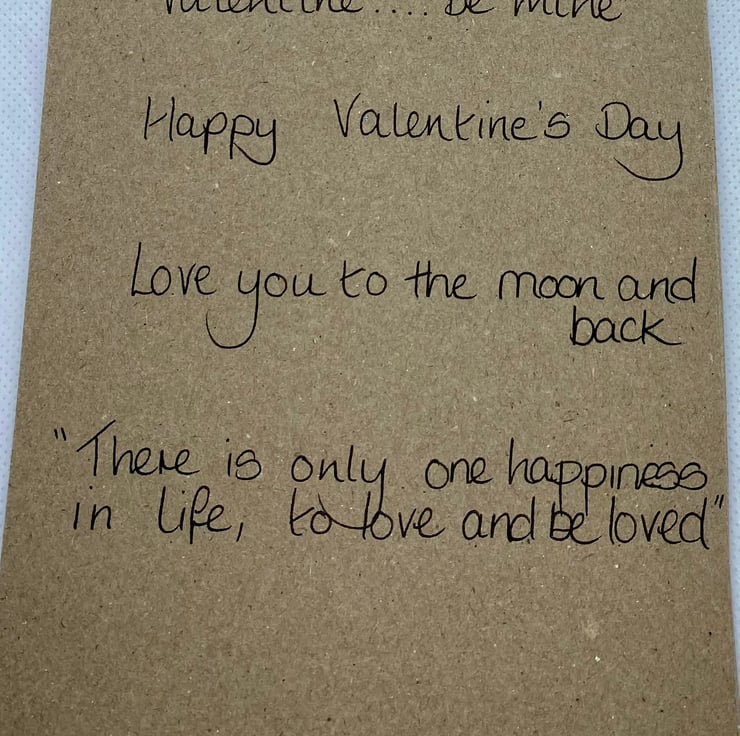 Valentine.... be mine
Happy Valentine's Day
Love you to the moon and
back
"There is only one happiness
in life, to love and be loved"